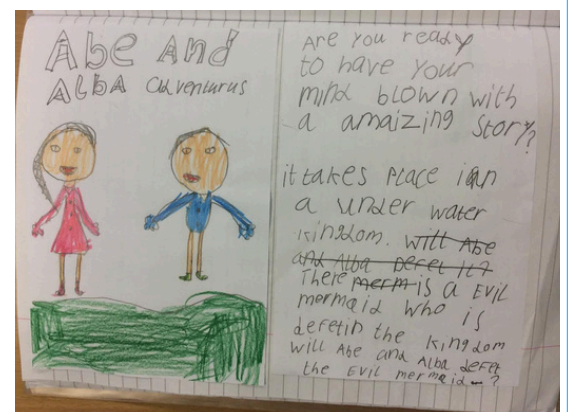 Abe And
Alba adventurus
Are you ready
to have your
mind blown with
a amaizing story?
it takes place in
a under water
kingdom. will Abe
and Alba defet it?
There merm is a Evil
mermaid who is
defetin the kingdom
will Abe and Alba defet
the Evil mermaid ?